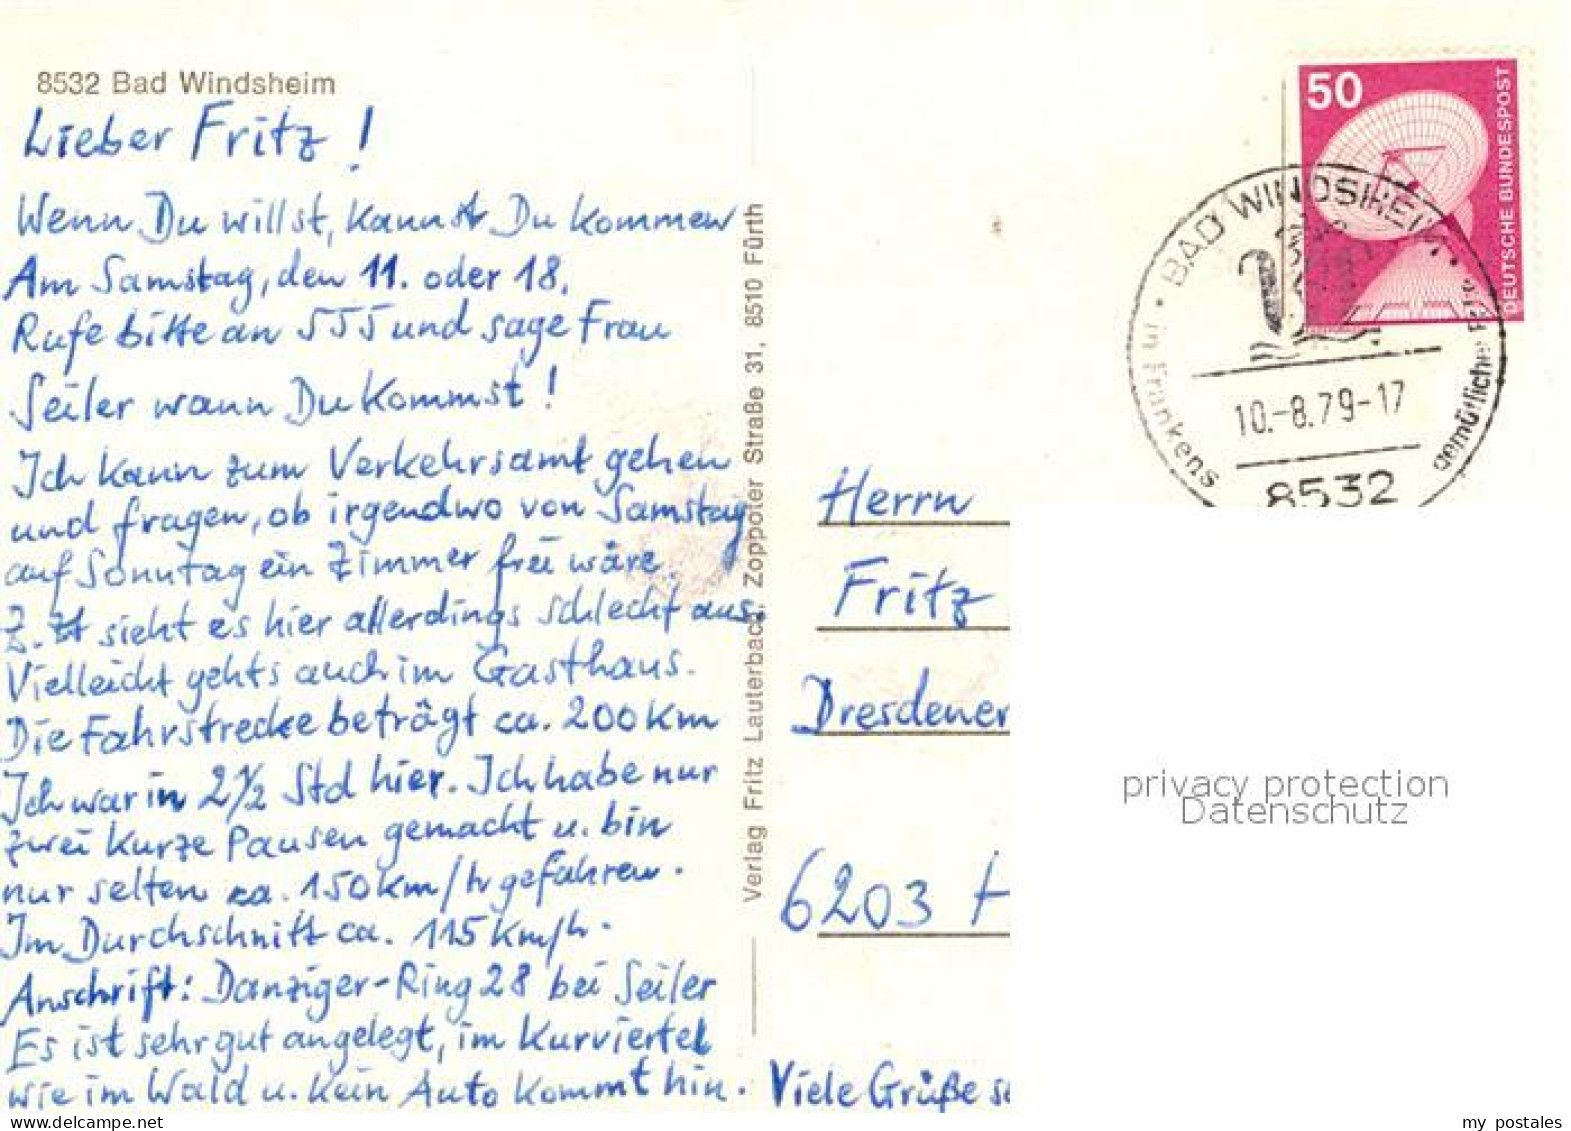 8532 Bad Windsheim
Lieber Fritz!
Wenn Du willst, kannst Du kommen
Am Samstag, den 11. oder 18.
Rufe bitte an 555 und sage Frau
Seiler wann Du kommst!
Ich kann zum Verkehrsamt gehen
und fragen, ob irgendwo von Samstag
auf Sonntag ein Zimmer frei wäre.
Z. Zt sieht es hier allerdings schlecht aus.
Vielleicht gehts auch im Gasthaus.
Die Fahrstrecke beträgt ca. 200 km
Ich war in 2 1/2 Std hier. Ich habe nur
zwei kurze Pausen gemacht u. bin
nur selten ca. 150 km/h gefahren.
Im Durchschnitt ca. 115 km/h.
Anschrift: Danziger-Ring 28 bei Seiler
Es ist sehr gut angelegt, im Kurviertel
wie im Wald u. kein Auto kommt hin.
Viele Grüße
Verlag Fritz Lauterbach, Zoppoter Straße 31, 8510 Fürth
50
DEUTSCHE BUNDESPOST
BAD WINDSHEIM
in Frankens gemütlicher
10.-8.79-17
8532
Herrn
Fritz
Dresdener
6203 H
privacy protection
Datenschutz
my postales